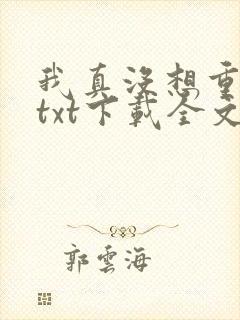 我真没想重
txt下載全文
郭雲海